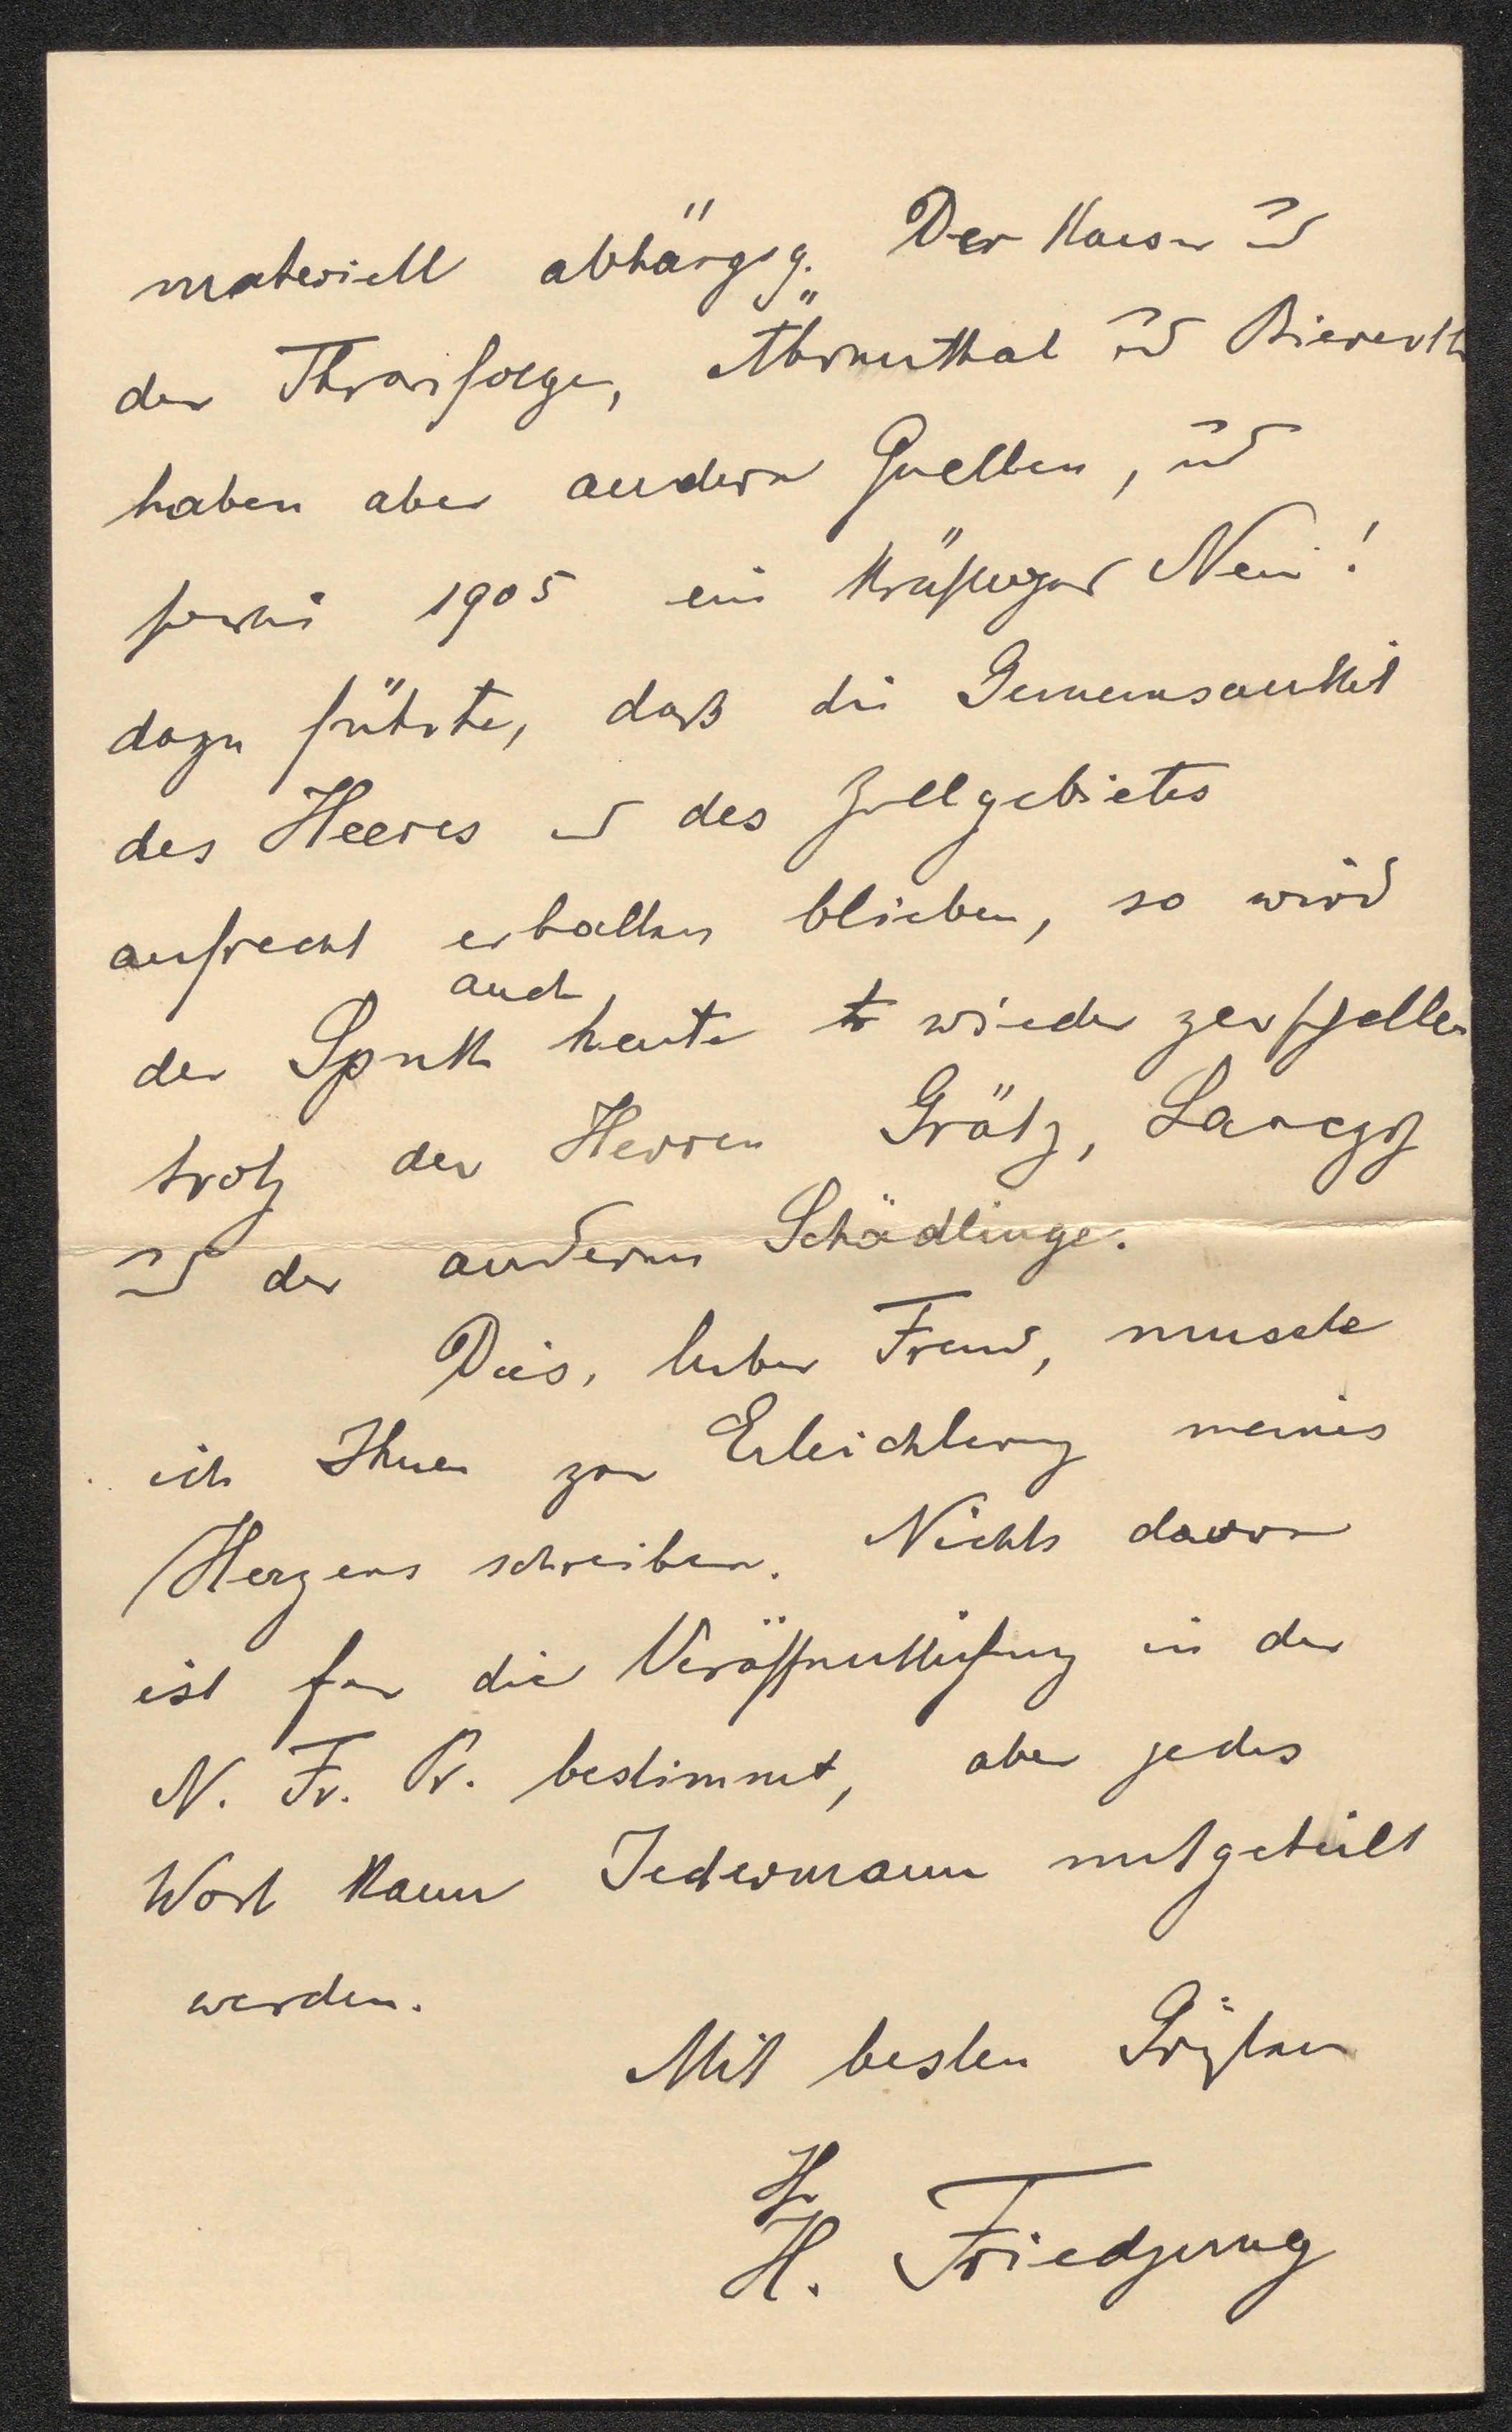 materiell abhängig. Der Kaiser und
der Thronfolger, Ährenthal und Bienerth
haben aber andere Quellen, und
sowie 1905 ein kräftiges Nein!
dazu führte, daß die Gemeinsamkeit
des Heeres und des Zollgebietes
aufrecht erhalten blieben, so wird
auch
der Spuk heute wieder zerschellen
trotz der Herren Grätz, Lanczy
und der anderen Schädlinge.
Dies, lieber Freund, musste
ich Ihnen zur Erleichterung meines
Herzens schreiben. Nichts davon
ist für die Veröffentlichung in der
N. Fr. Pr. bestimmt, aber jedes
Wort kann Jedermann mitgeteilt
werden.
Mit besten Grüßen
Ihr
H. Friedjung